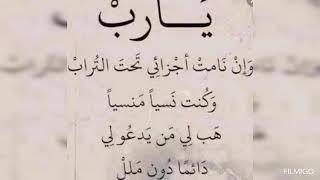 يَـــارَبْ
وَإنْ نَامتْ أجْزائي تَحتَ التُرابْ
وَكُنت نَسياً مَنسياً
هَب لِي مَن يَدعُو لِي
دَائمًا دُون مَللْ
FILMIGO